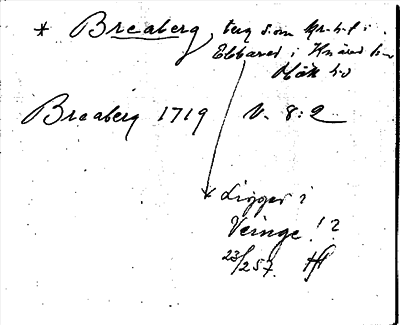 * Breaberg, berg som
Ebbared i Knäred sn
Hök hd
Breaberg 1719 V. 8:2
* Ligger i
Veinge!?
23/2 57.